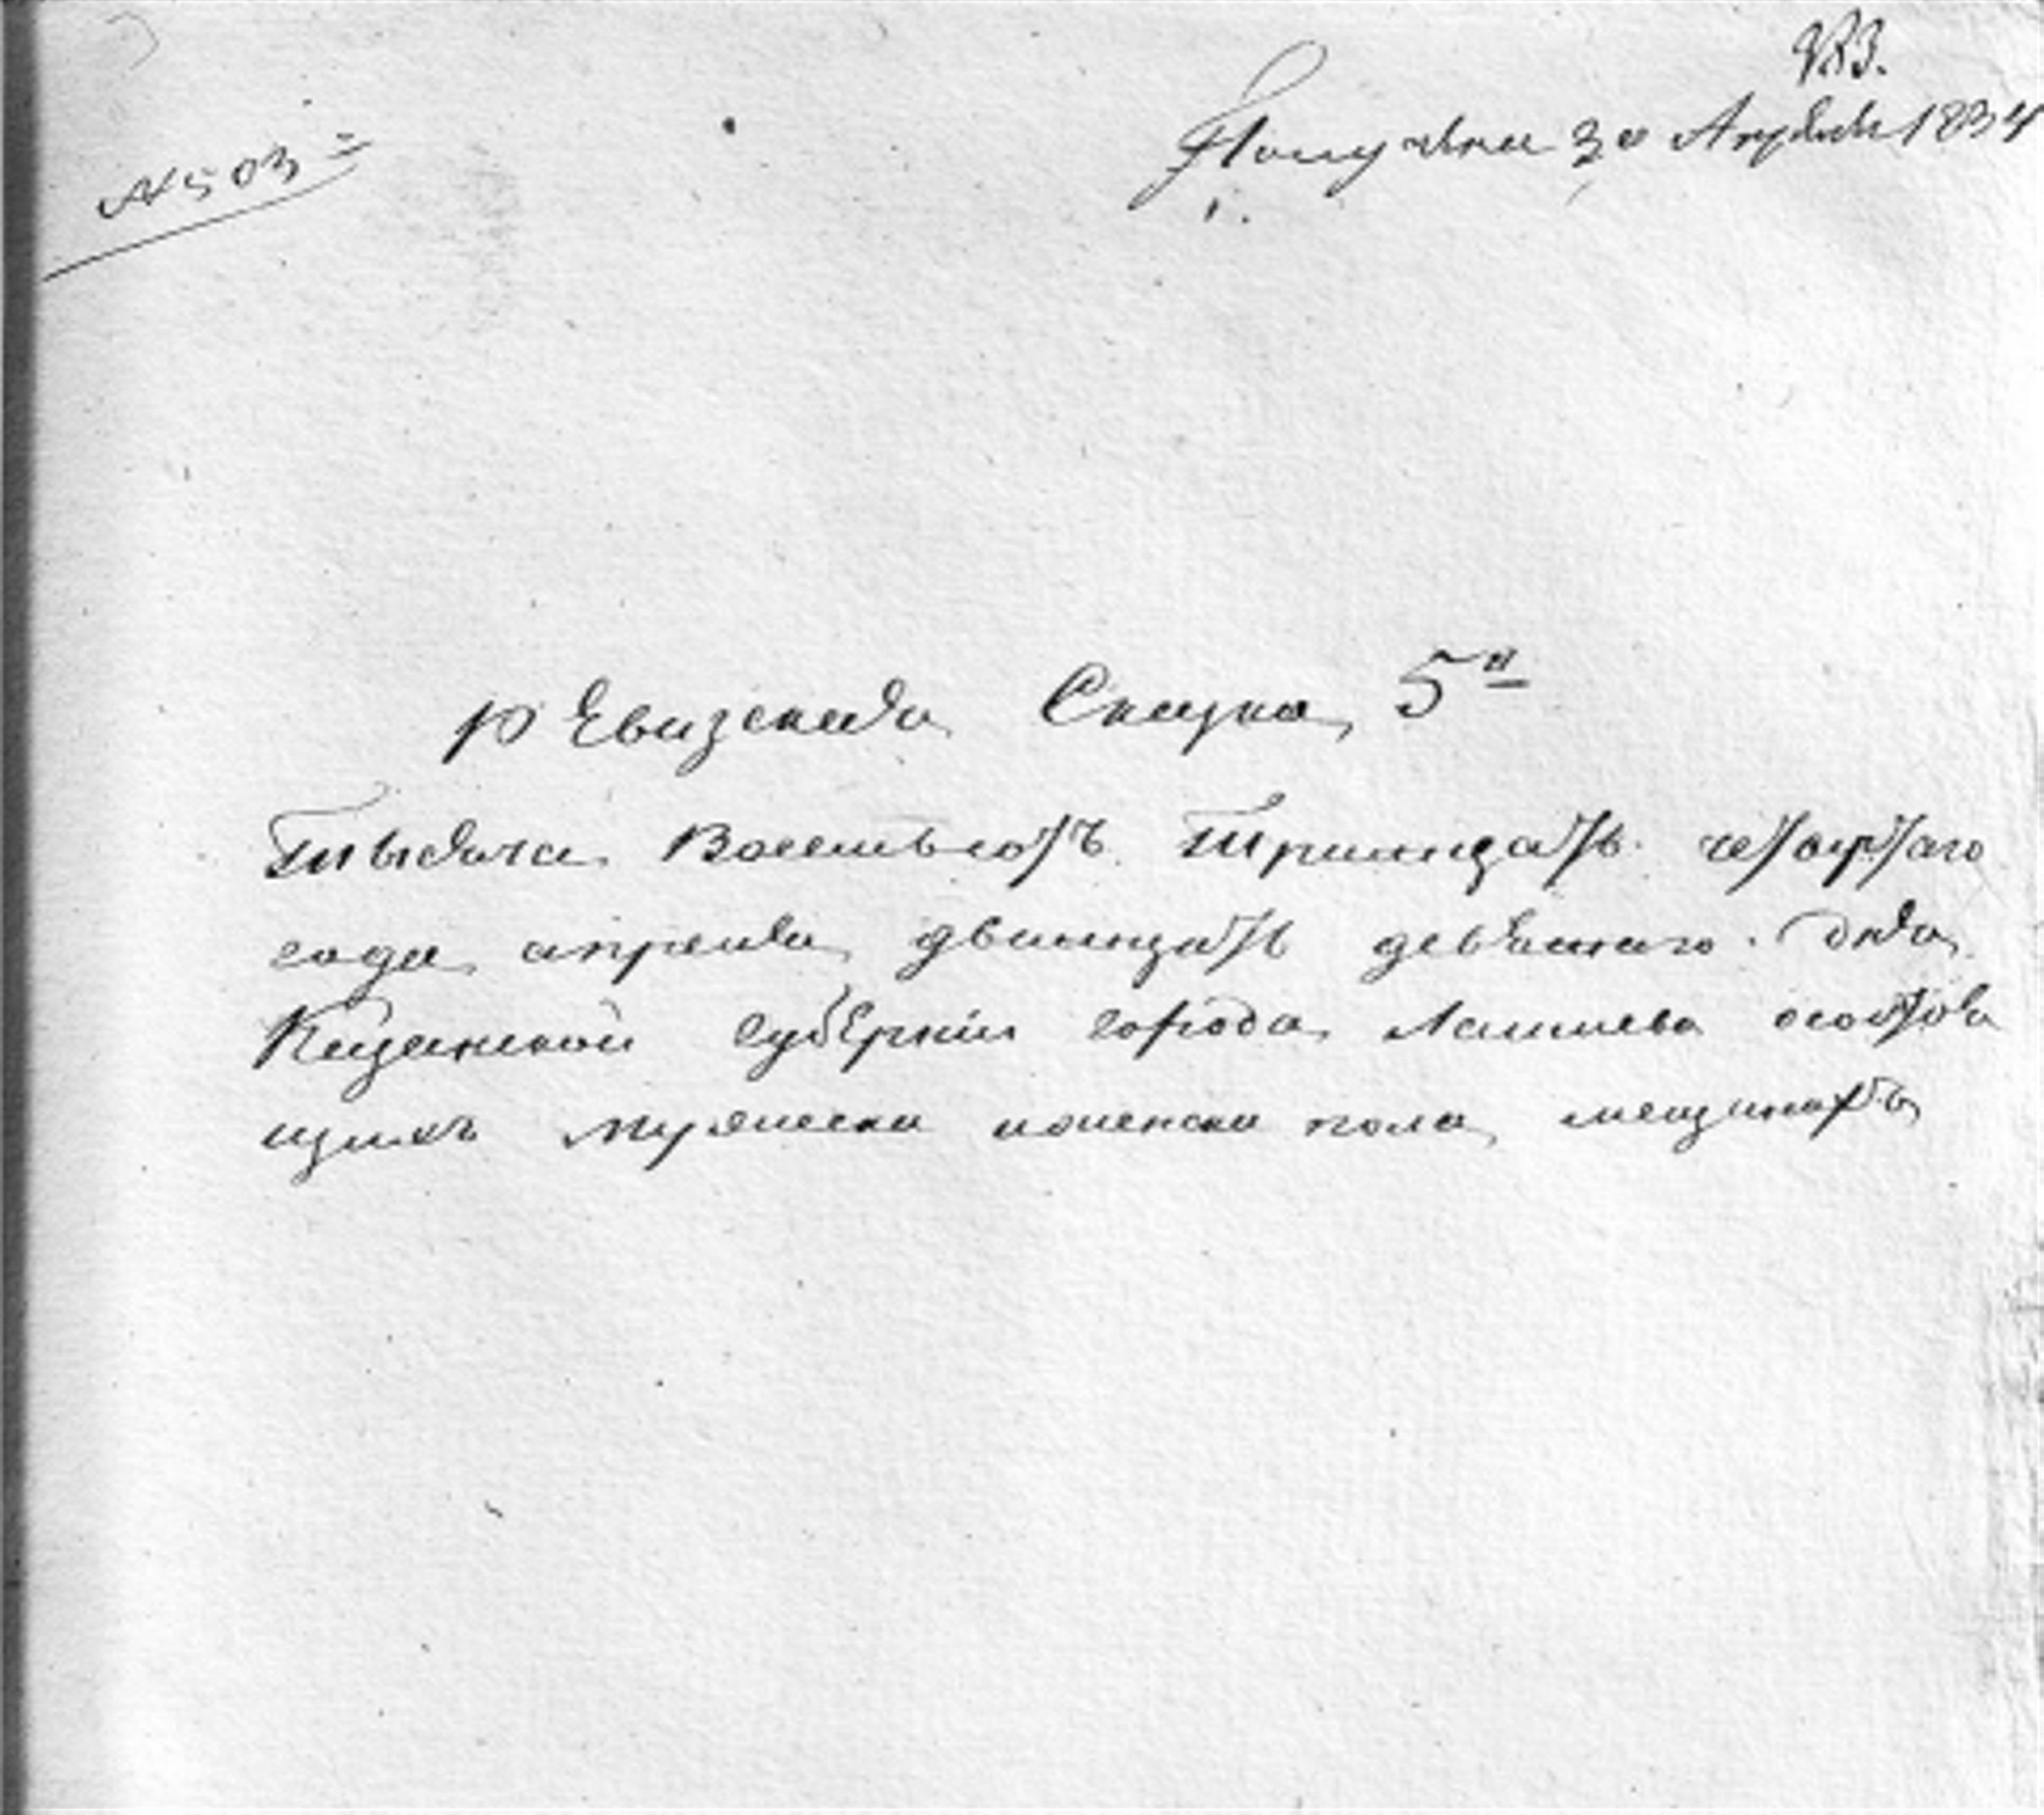 № 503
Получена 30 Апреля 1834
Ревизская Сказка 5я
Тысяча Восемьсотъ Тритцать четвертаго
года апреля дватцать девятаго дня
Казанской губернiи города Лаишева состоя
щихъ мужеска иженска пола мещинахъ